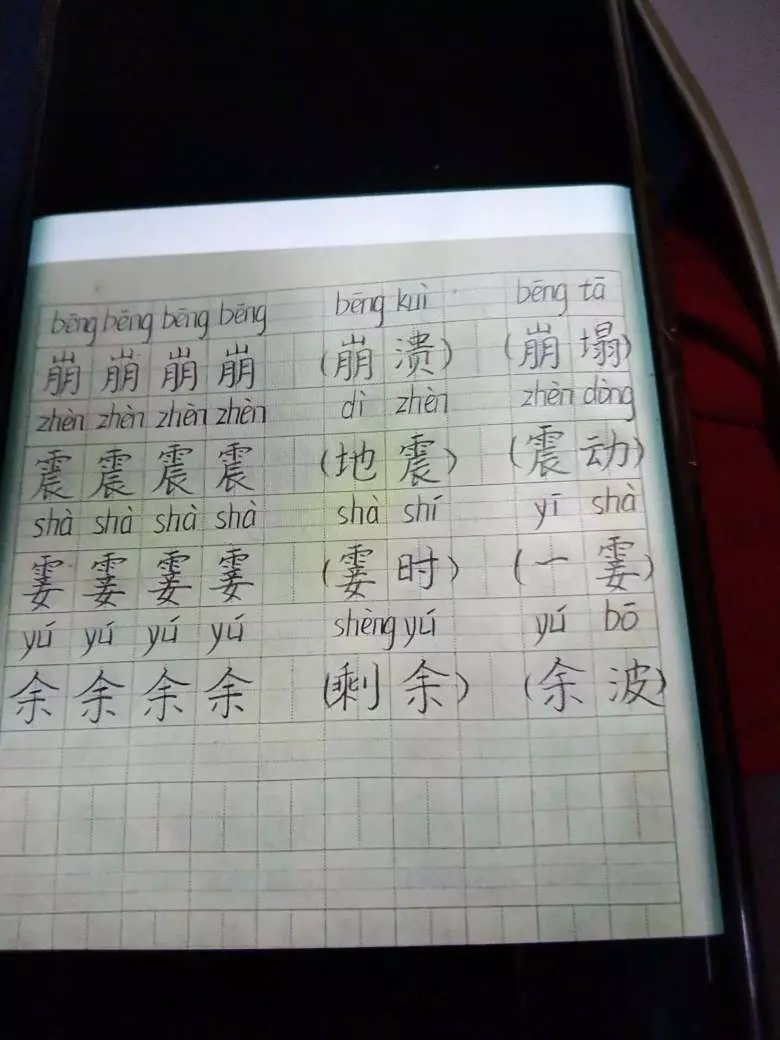 bēng bēng bēng bēng bēng kuì bēng tā
崩 崩 崩 崩 (崩 溃) (崩 塌)
zhèn zhèn zhèn zhèn dì zhèn zhèn dòng
震 震 震 震 (地 震) (震 动)
shà shà shà shà shà shí yī shà
霎 霎 霎 霎 (霎 时) (一 霎)
yú yú yú yú shèng yú yú bō
余 余 余 余 (剩 余) (余 波)